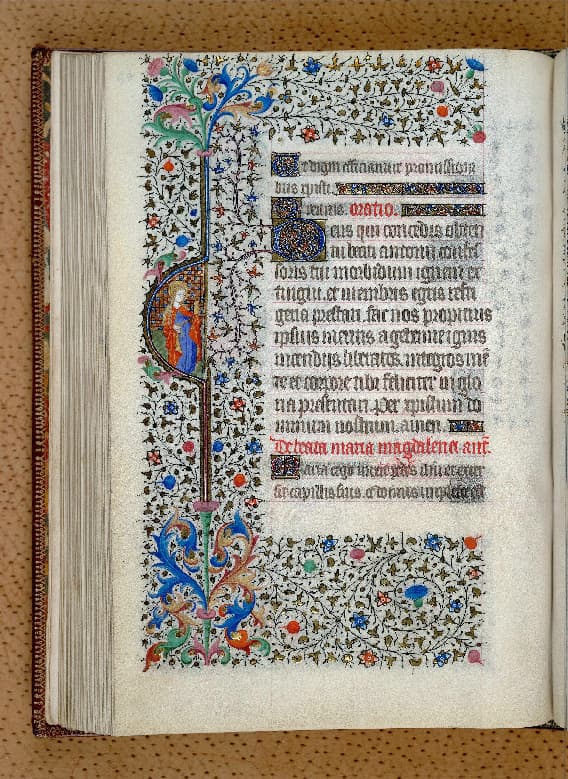 Et digni efficiamur promissioni
bus xpisti.
Oremus. oratio.
Deus qui concedis obten
tu beati antonii confes
soris tui morbidum ignem ex
tingui. et membris egris refri
geria prestari. fac nos propicius
ipsius meritis a gehenne ignis
incendiis liberatos. integros mē
te et corpore tibi feliciter in glo
ria presentari. Per xpistum do
minum nostrum. amen.
De beata maria magdalena añt.
Maria ergo unxit pedes
et capillis suis. et domus impleta est